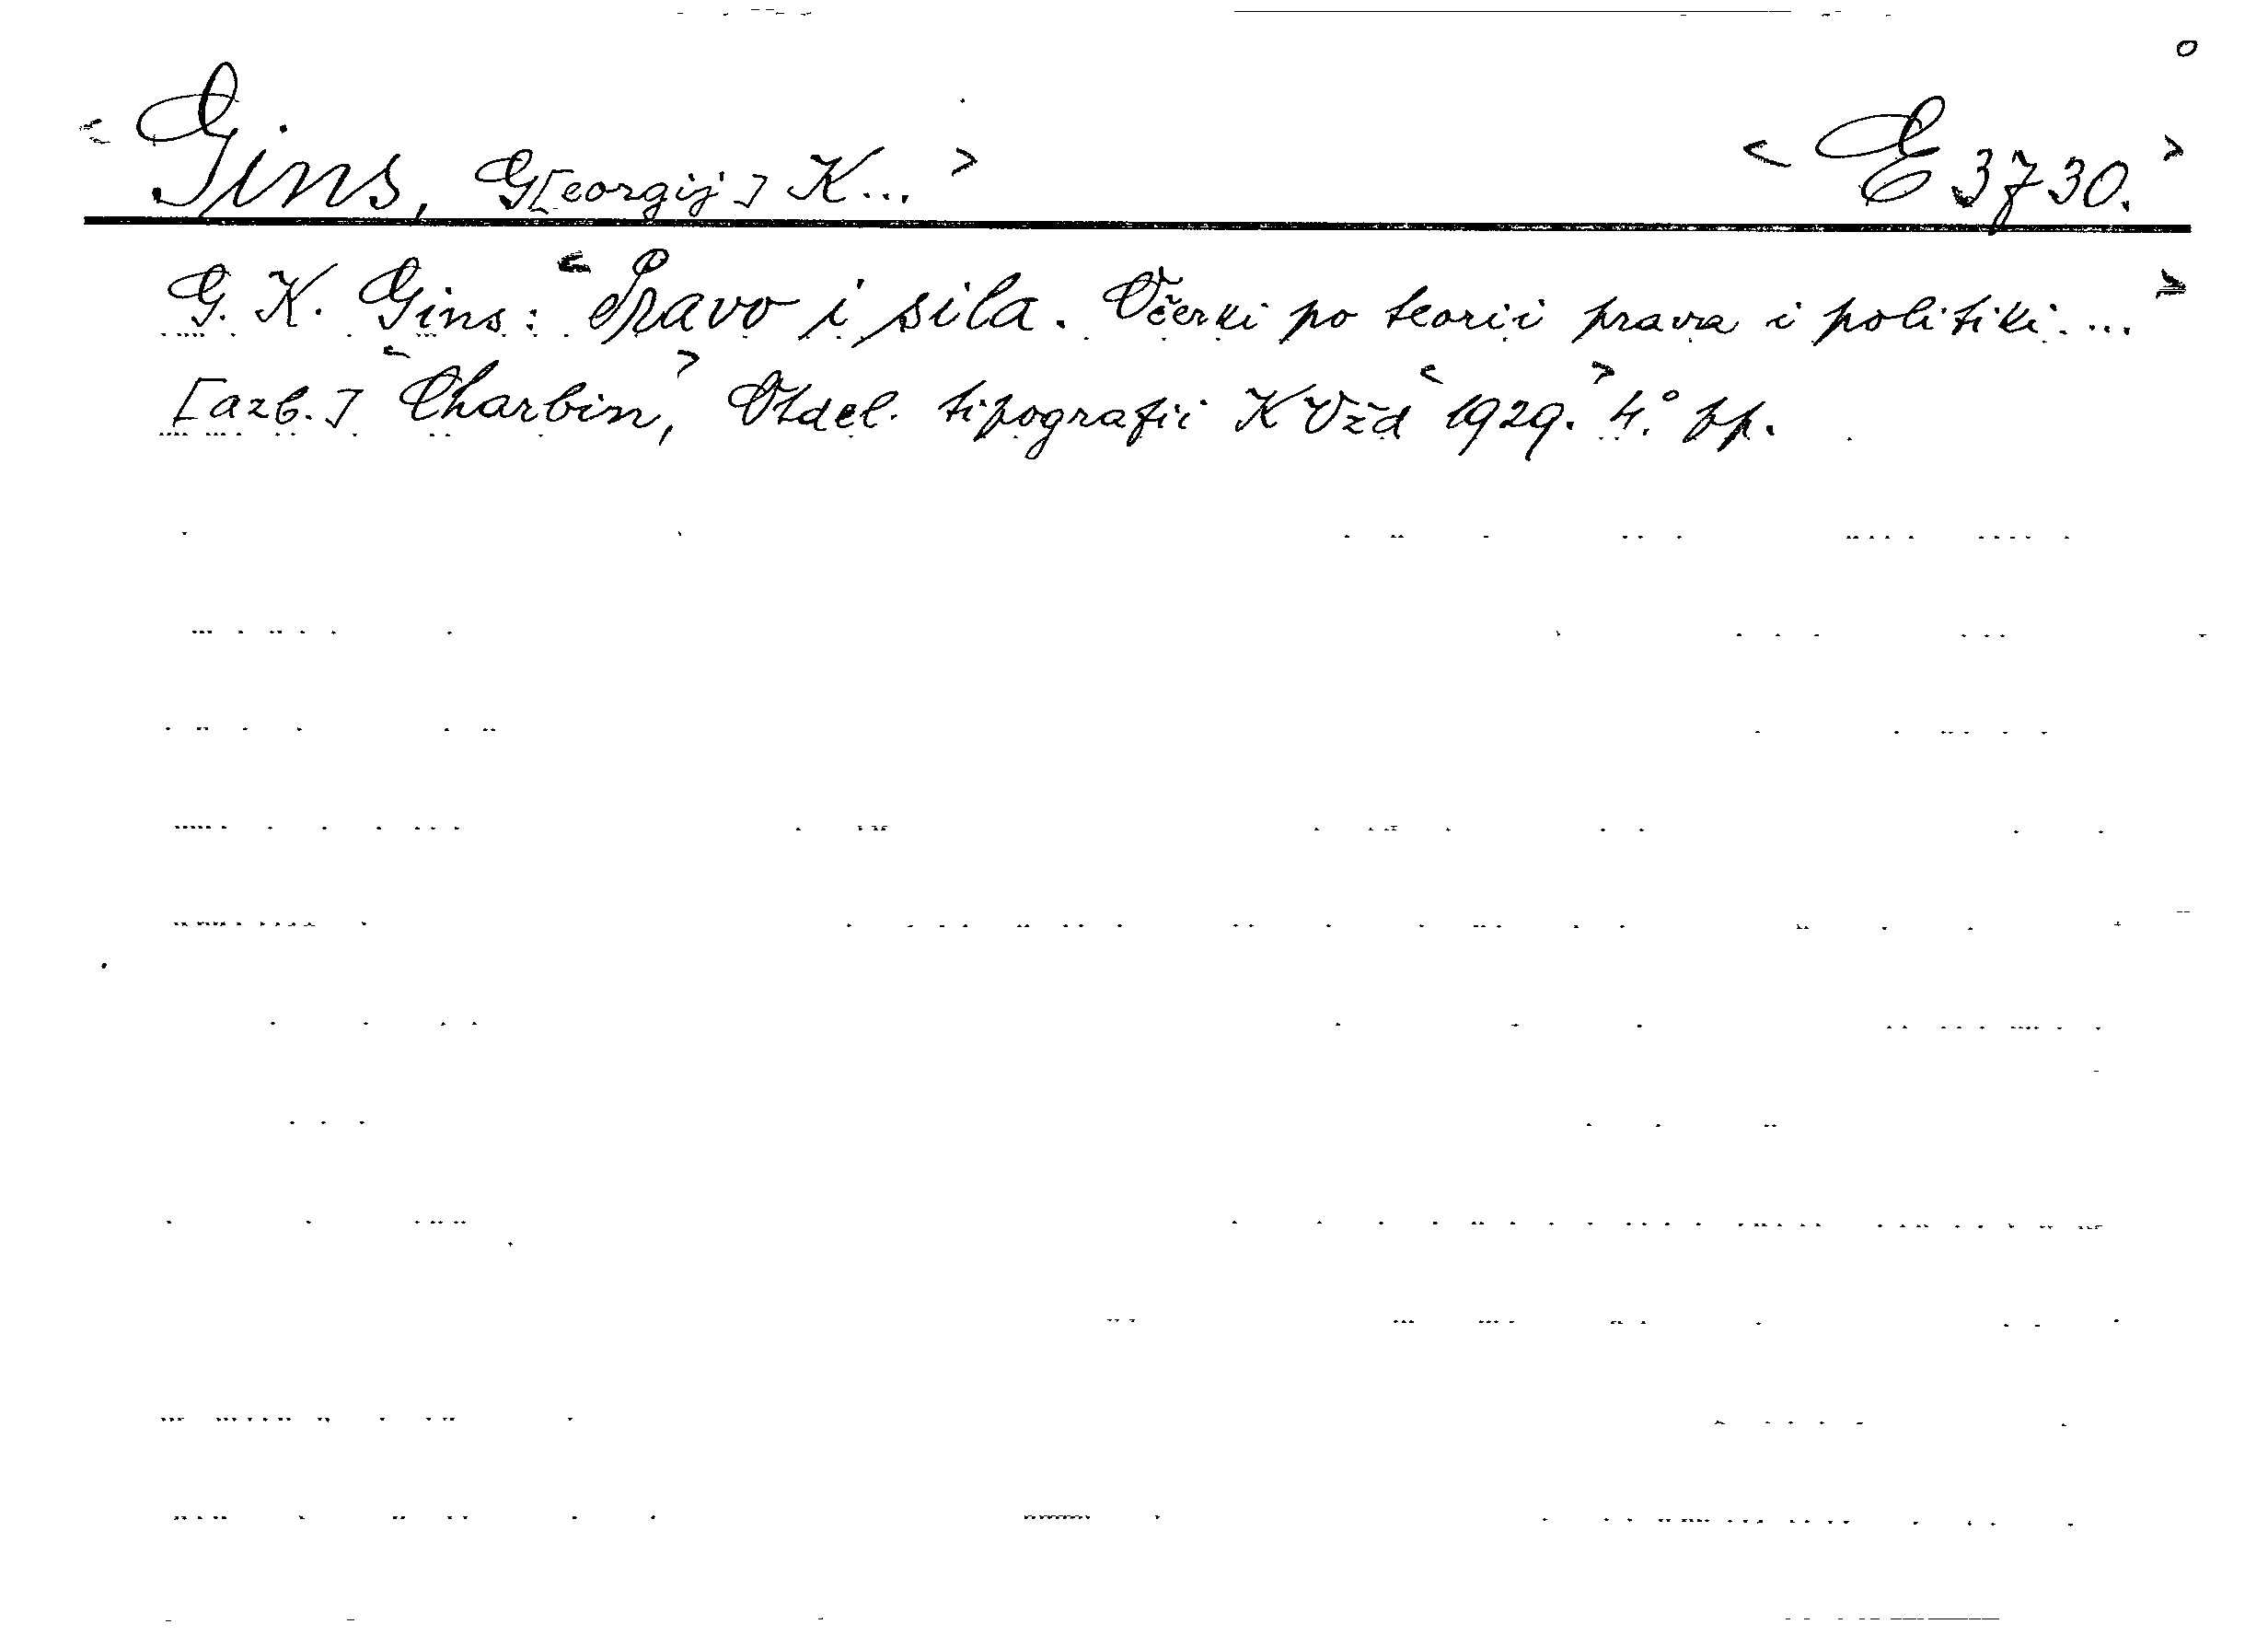 < Gins, G[eorgij] K... > < E 3730. >
G. K. Gins: < Pravo i sila. Očerki po teorii prava i politiki. ... >
[azb.] < Charbin, > Otdel. tipografii KVžd < 1929. > 4.° pp.